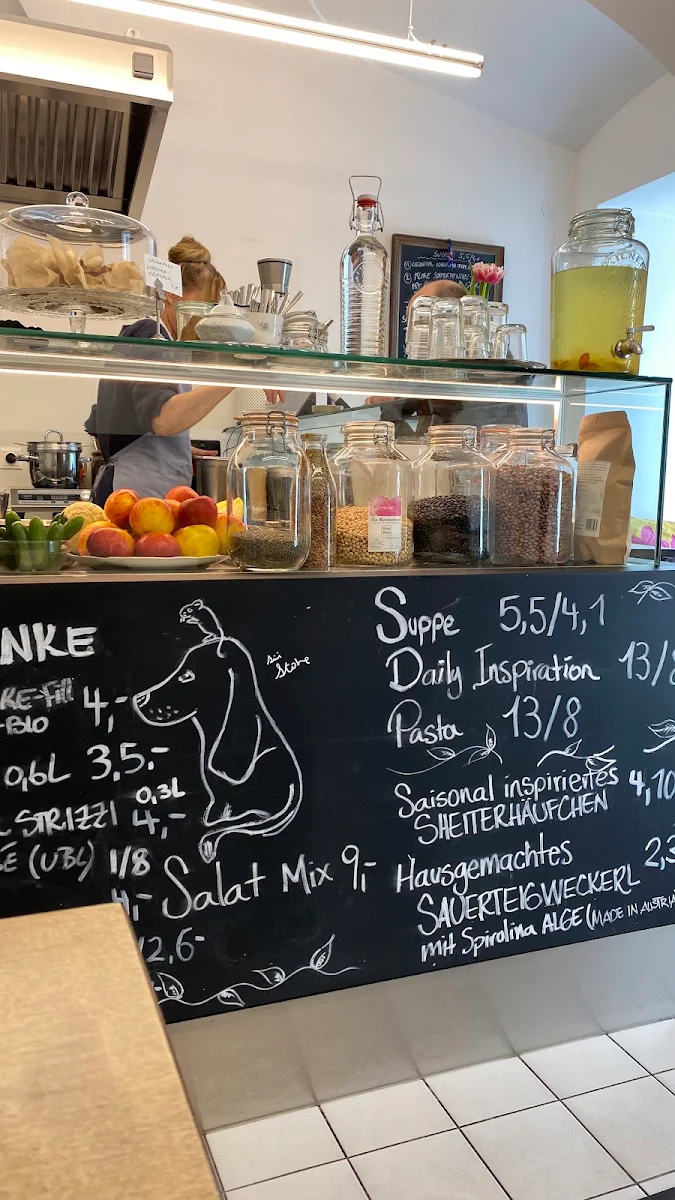 SUPPE 5,5/4,-
NKE
RE-Fill 4,-
-BIO
0,6L 3,5.-
0,3L
STRIZZI 4,-
E (UBL) 1/8
4,-
2,6-
Salat Mix 9,-
Suppe 5,5/4,1
Daily Inspiration 13/8
Pasta 13/8
Saisonal inspiriertes 4,10
SHEITERHÄUFCHEN
Hausgemachtes 2,3
SAUERTEIGWECKERL
mit Spirolina ALGE (MADE IN AUSTRIA